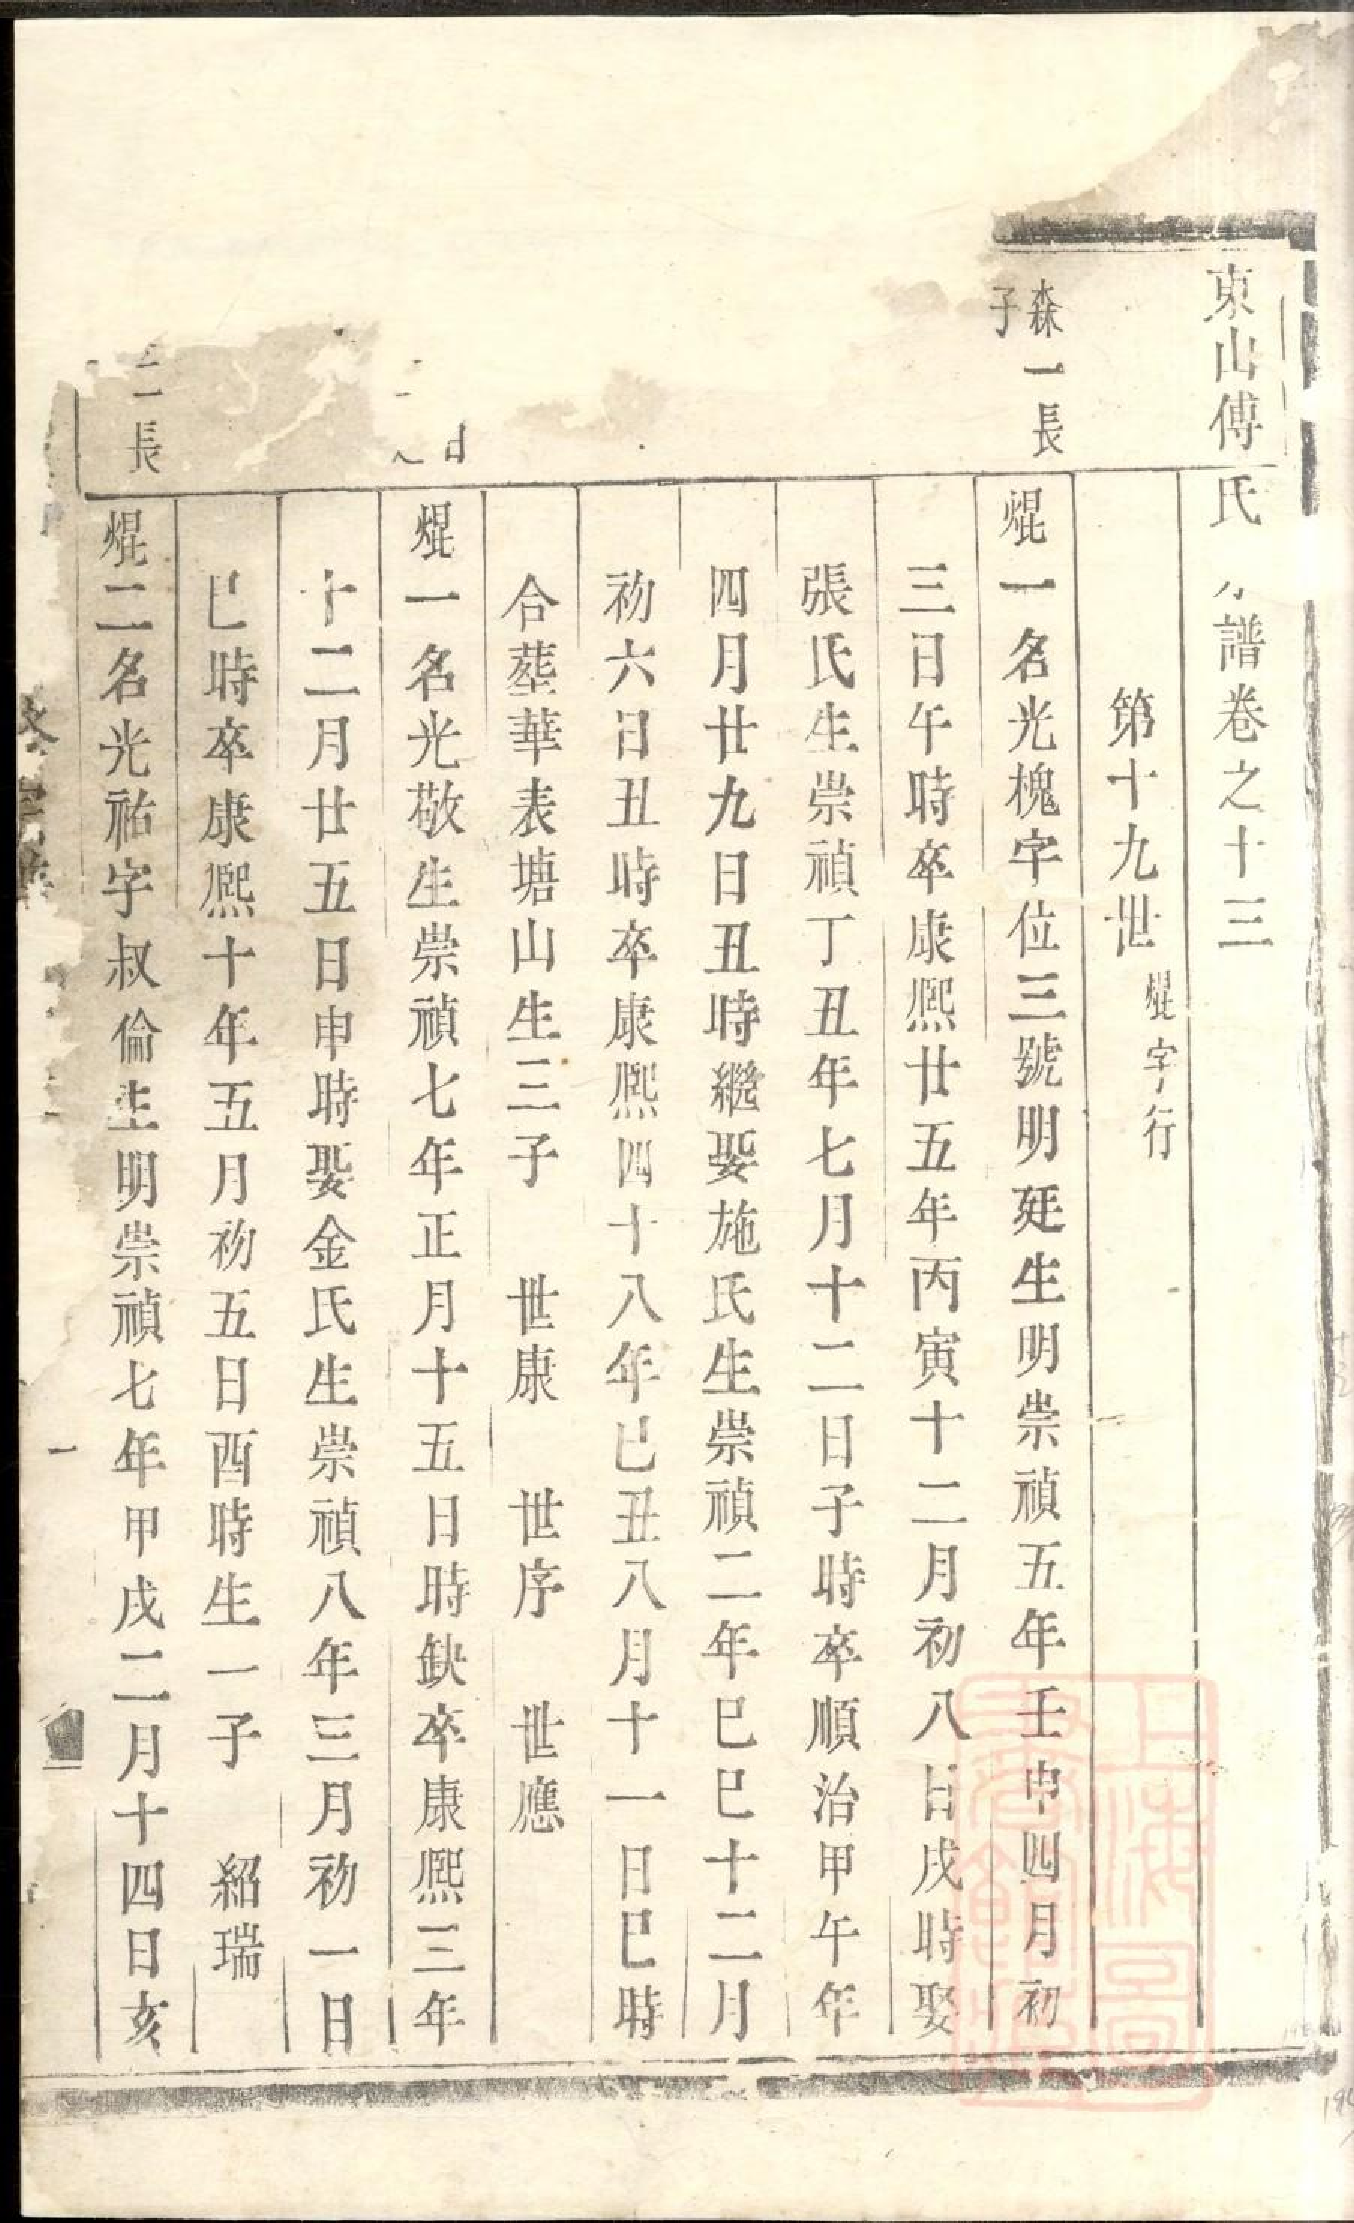 東山傅氏 譜卷之十三
第十九世 焜字行
森一長
子
焜一名光槐字位三號明廷生明崇禎五年壬申四月初
三日午時卒康熙廿五年丙寅十二月初八日戌時娶
張氏生崇禎丁丑年七月十二日子時卒順治甲午年
四月廿九日丑時繼娶施氏生崇禎二年巳巳十二月
初六日丑時卒康熙四十八年巳丑八月十一日巳時
合塟華表塘山生三子 世康 世序 世應
焜一名光敬生崇禎七年正月十五日時缺卒康熙三年
十二月廿五日申時娶金氏生崇禎八年三月初一日
巳時卒康熙十年五月初五日酉時生一子 紹瑞
二長
焜二名光祐字叔倫生明崇禎七年甲戌二月十四日亥
一
上海圖
書館藏